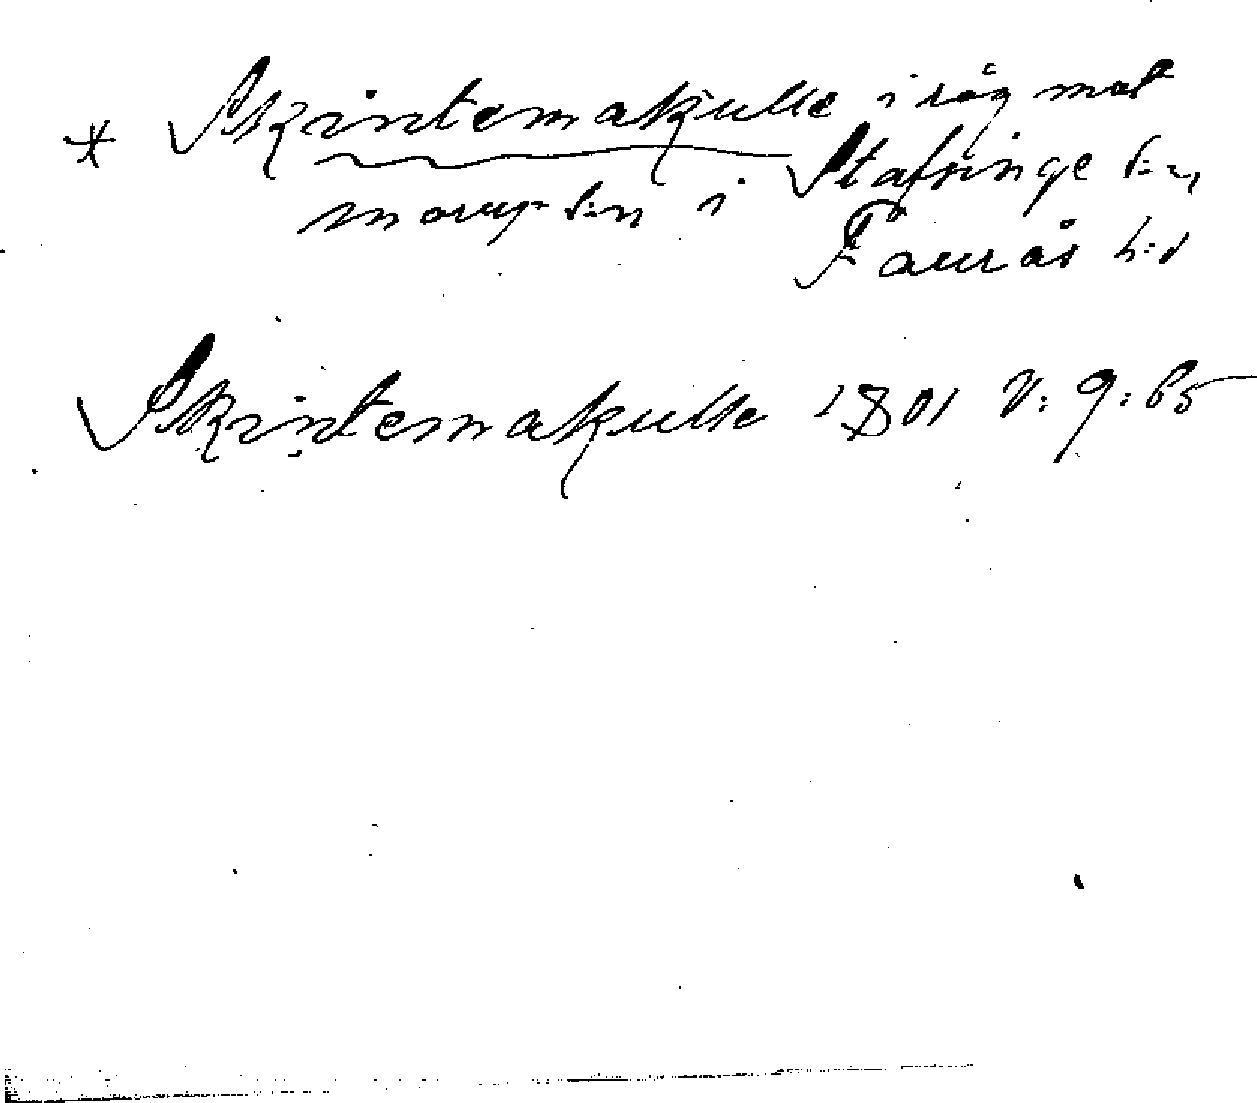 * Skintemakulle i råg mot
morup s:n i Stafsinge s:n,
Faurås h:d
Skintemakulle 1801 V: 9: 65